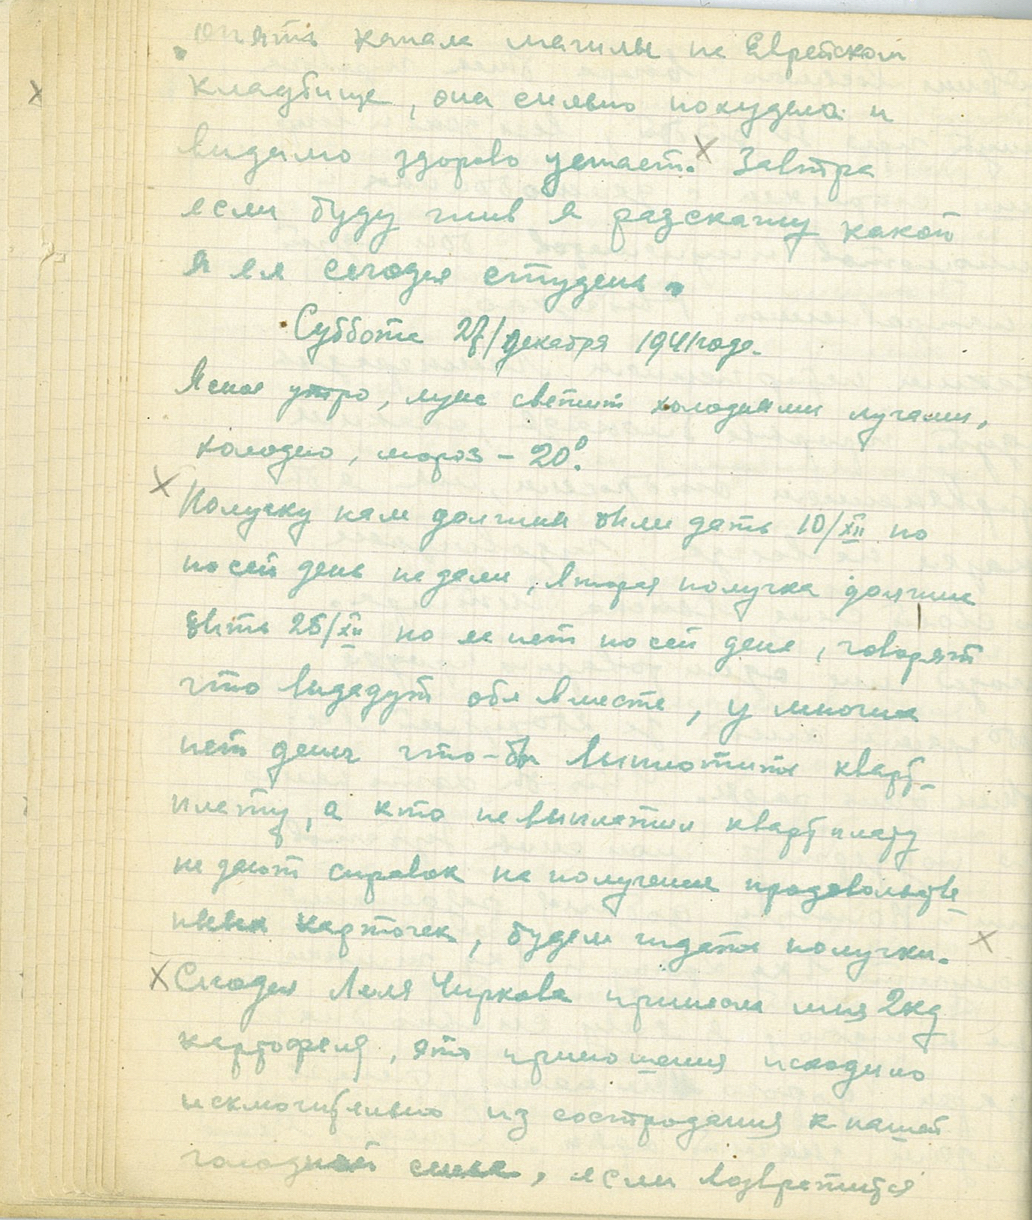 опять копала магилы на Еврейском
кладбище, она сильно похудела и
видимо здорово устает. Завтра
если буду жив я разскажу какой
я ел сегодня студень.
Суббота 27/декабря 1941 года.
Ясное утро, луна светит холодными лучами,
холодно, мороз – 20°.
Получку нам должны были дать 10/XII но
по сей день не дали, вторая получка должна
быть 25/XII но ее нет по сей день, говорят
что выдадут обе вместе, у многих
нет денег что-бы выплотить кварт-
плату, а кто невыплатил квартплату
не дают справок на получения продовольстве-
нных карточек, будем ждать получки.
Сегодня Леля Чиркова принесла мне 2кг
картофеля, это приношения исходило
исключительно из сострадания к нашей
голодной семье, если возвратится